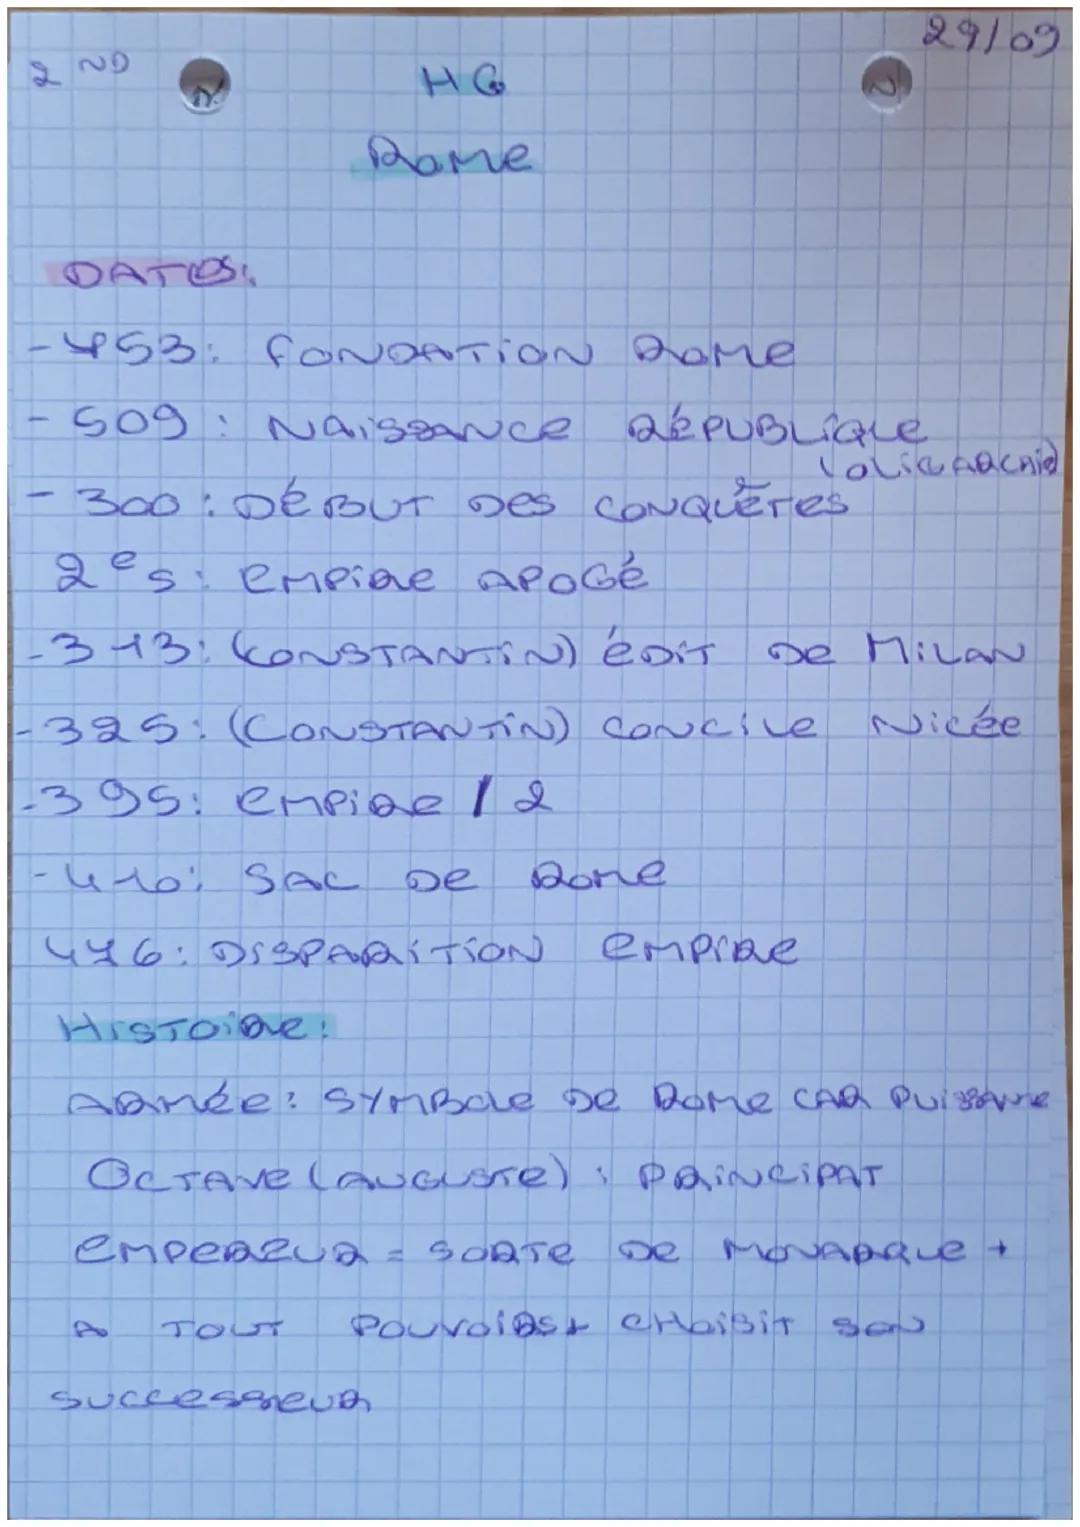 29/09
2ND
HG
Rome
DATES:
-753: FONDATION ROME
-509: NAISSANCE RÉPUBLIQUE
(OLIGARCHIE)
-300: DÉBUT DES CONQUÊTES
2e s: EMPIRE APOGÉ
-313: (CONSTANTIN) ÉDIT DE MILAN
-325: (CONSTANTIN) CONCILE NICÉE
-395: EMPIRE / 2
-410: SAC DE ROME
476: DISPARITION EMPIRE
HISTOIRE:
ARMÉE: SYMBOLE DE ROME CAR PUISSANTE
OCTAVE (AUGUSTE): PRINCIPAT
EMPEREUR = SORTE DE MONARQUE +
A TOUT POUVOIRS + CHOISIT SON
SUCCESSEUR